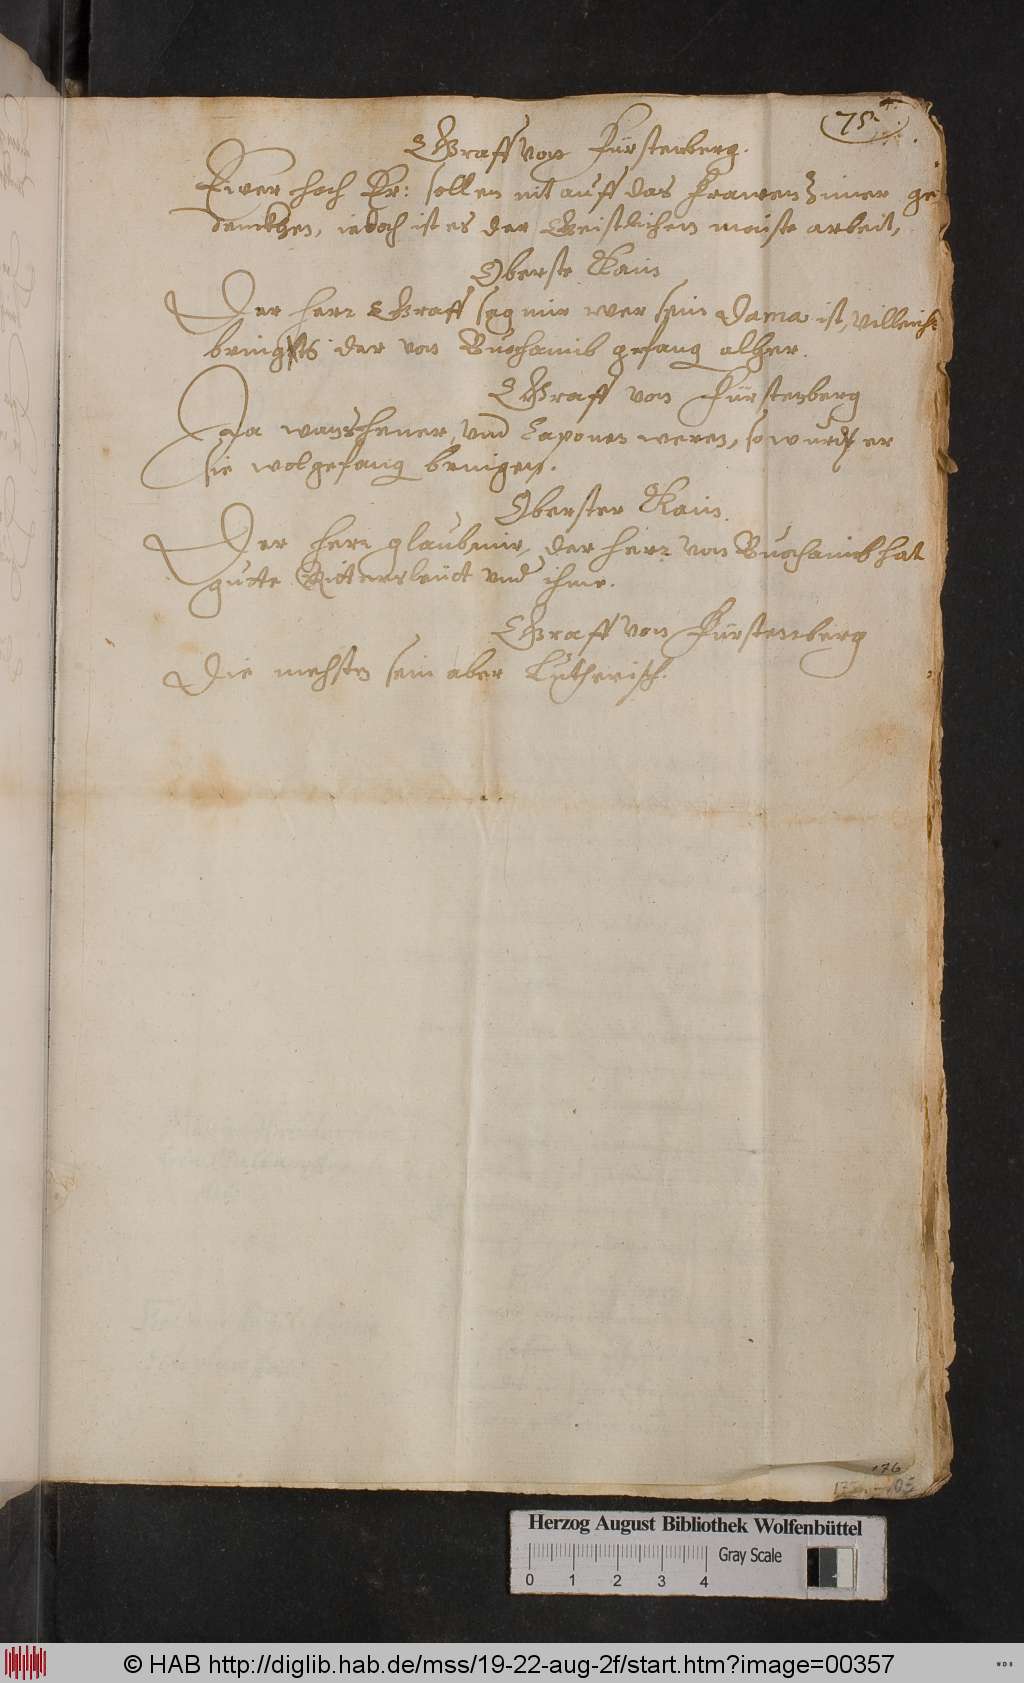 75.
Graff von Fürstenberg.
Ewer hoch Er: sollen nit auff das Frawen Zimer ge
denckhen, iedoch ist es der Geistlichen maiste arbeit,
Oberste Kain
Der herr Graff sag mir wer sein Dama ist, villeicht
bringts der von Buochaimb gefang alher.
Graff von Fürstenberg
Ja wans hener, vnd Caponen weren, so wurd er
sie wol gefang bringen.
Oberster Kain.
Der herr glaub mir, der herr von Buochaimb hat
gutte Rittersleüt vnd ihme.
Graff von Fürstenberg
Die mehsten sein aber Lutherisch.
176
Herzog August Bibliothek Wolfenbüttel
Gray Scale
0 1 2 3 4
© HAB http://diglib.hab.de/mss/19-22-aug-2f/start.htm?image=00357